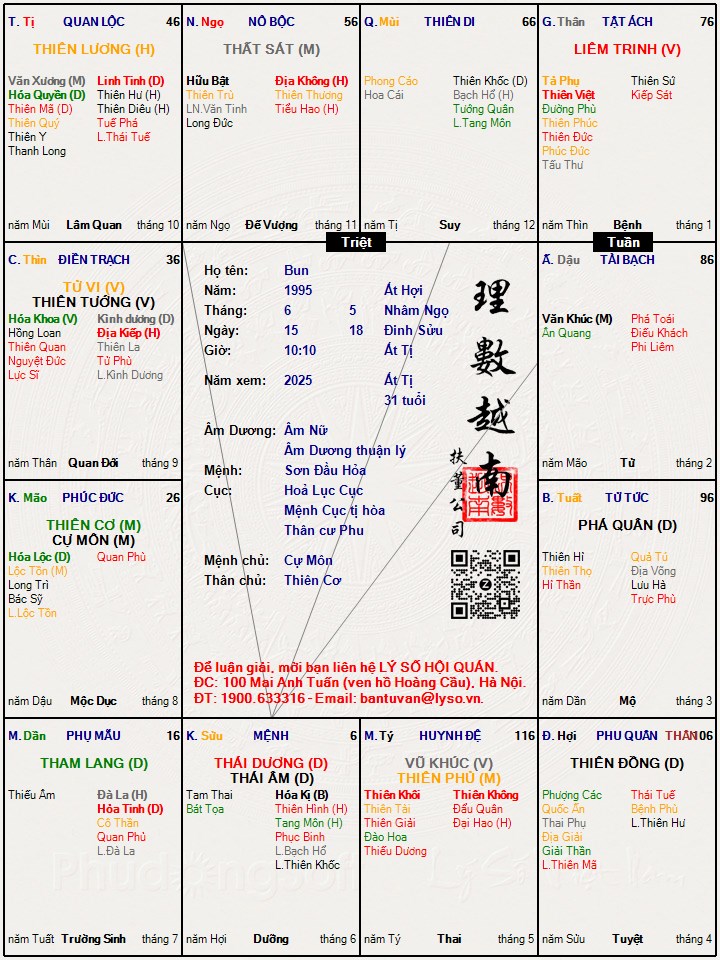 T. Tị QUAN LỘC 46
THIÊN LƯƠNG (H)
Văn Xương (M) Linh Tinh (D)
Hóa Quyền (D) Thiên Hư (H)
Thiên Mã (D) Thiên Diêu (H)
Thiên Quý Tuế Phá
Thiên Y L.Thái Tuế
Thanh Long
năm Mùi Lâm Quan tháng 10
N. Ngọ NÔ BỘC 56
THẤT SÁT (M)
Hữu Bật Địa Không (H)
Thiên Trù Thiên Thương
LN.Văn Tinh Tiểu Hao (H)
Long Đức
năm Ngọ Đế Vượng tháng 11
Q. Mùi THIÊN DI 66
Phong Cáo Thiên Khốc (D)
Hoa Cái Bạch Hổ (H)
Tướng Quân
L.Tang Môn
năm Tị Suy tháng 12
G. Thân TẬT ÁCH 76
LIÊM TRINH (V)
Tả Phụ Thiên Sứ
Thiên Việt Kiếp Sát
Đường Phù
Thiên Phúc
Thiên Đức
Phúc Đức
Tấu Thư
năm Thìn Bệnh tháng 1
Triệt
Tuần
C. Thìn ĐIỀN TRẠCH 36
TỬ VI (V)
THIÊN TƯỚNG (V)
Hóa Khoa (V) Kình dương (D)
Hồng Loan Địa Kiếp (H)
Thiên Quan Thiên La
Nguyệt Đức Tử Phù
Lực Sĩ L.Kình Dương
năm Thân Quan Đới tháng 9
Họ tên: Bun
Năm: 1995 Ất Hợi
Tháng: 6 5 Nhâm Ngọ
Ngày: 15 18 Đinh Sửu
Giờ: 10:10 Ất Tị
Năm xem: 2025 Ất Tị
31 tuổi
Âm Dương: Âm Nữ
Âm Dương thuận lý
Mệnh: Sơn Đầu Hỏa
Cục: Hoả Lục Cục
Mệnh Cục tị hòa
Thân cư Phu
Mệnh chủ: Cự Môn
Thân chủ: Thiên Cơ
理數越南
扶董公司
Để luận giải, mời bạn liên hệ LÝ SỐ HỘI QUÁN.
ĐC: 100 Mai Anh Tuấn (ven hồ Hoàng Cầu), Hà Nội.
ĐT: 1900.633316 - Email: bantuvan@lyso.vn.
Ấ. Dậu TÀI BẠCH 86
Văn Khúc (M) Phá Toái
Ân Quang Điếu Khách
Phi Liêm
năm Mão Tử tháng 2
K. Mão PHÚC ĐỨC 26
THIÊN CƠ (M)
CỰ MÔN (M)
Hóa Lộc (D) Quan Phù
Lộc Tồn (M)
Long Trì
Bác Sỹ
L.Lộc Tồn
năm Dậu Mộc Dục tháng 8
B. Tuất TỬ TỨC 96
PHÁ QUÂN (D)
Thiên Hỉ Quả Tú
Thiên Thọ Địa Võng
Hỉ Thần Lưu Hà
Trực Phù
năm Dần Mộ tháng 3
M. Dần PHỤ MẪU 16
THAM LANG (D)
Thiếu Âm Đà La (H)
Hỏa Tinh (D)
Cô Thần
Quan Phủ
L.Đà La
năm Tuất Trường Sinh tháng 7
K. Sửu MỆNH 6
THÁI DƯƠNG (D)
THÁI ÂM (D)
Tam Thai Hóa Kị (B)
Bát Tọa Thiên Hình (H)
Tang Môn (H)
Phục Binh
L.Bạch Hổ
L.Thiên Khốc
năm Hợi Dưỡng tháng 6
M. Tý HUYNH ĐỆ 116
VŨ KHÚC (V)
THIÊN PHỦ (M)
Thiên Khôi Thiên Không
Thiên Tài Đẩu Quân
Thiên Giải Đại Hao (H)
Đào Hoa
Thiếu Dương
năm Tý Thai tháng 5
Đ. Hợi PHU QUÂN THÂN 106
THIÊN ĐỒNG (D)
Phượng Các Thái Tuế
Quốc Ấn Bệnh Phù
Thai Phụ L.Thiên Hư
Địa Giải
Giải Thần
L.Thiên Mã
năm Sửu Tuyệt tháng 4